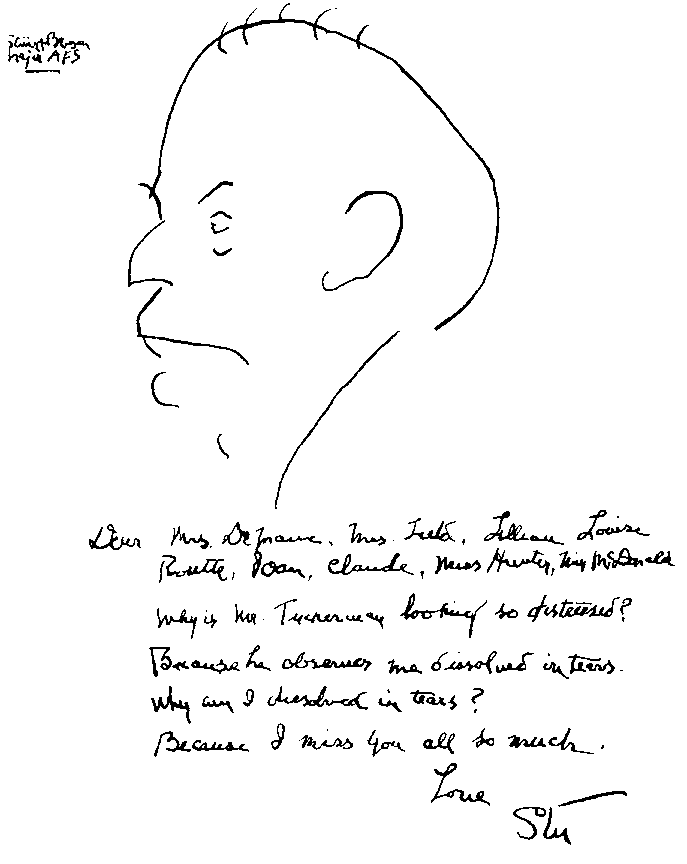 AFS
Dear Mrs. DeFrance, Mrs. Field, Lillian Louise
Rosette, Joan, Claude, Miss Hunter, Miss McDonald
Why is Mr. Tuckerman looking so distressed?
Because he observes me dissolved in tears.
Why am I dissolved in tears?
Because I miss you all so much.
Love
Stu